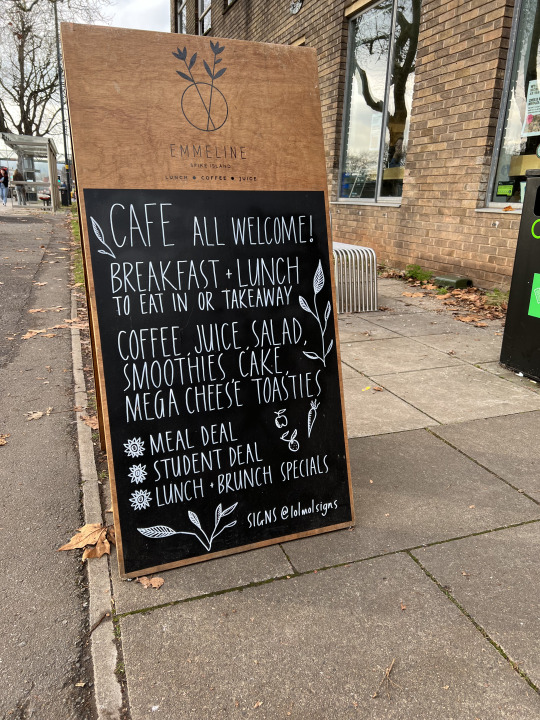 EMMELINE
SPIKE ISLAND
LUNCH COFFEE JUICE
CAFE ALL WELCOME!
BREAKFAST + LUNCH
TO EAT IN OR TAKEAWAY
COFFEE, JUICE, SALAD,
SMOOTHIES, CAKE,
MEGA CHEESE TOASTIES
MEAL DEAL
STUDENT DEAL
LUNCH + BRUNCH SPECIALS
SIGNS @lolmolsigns